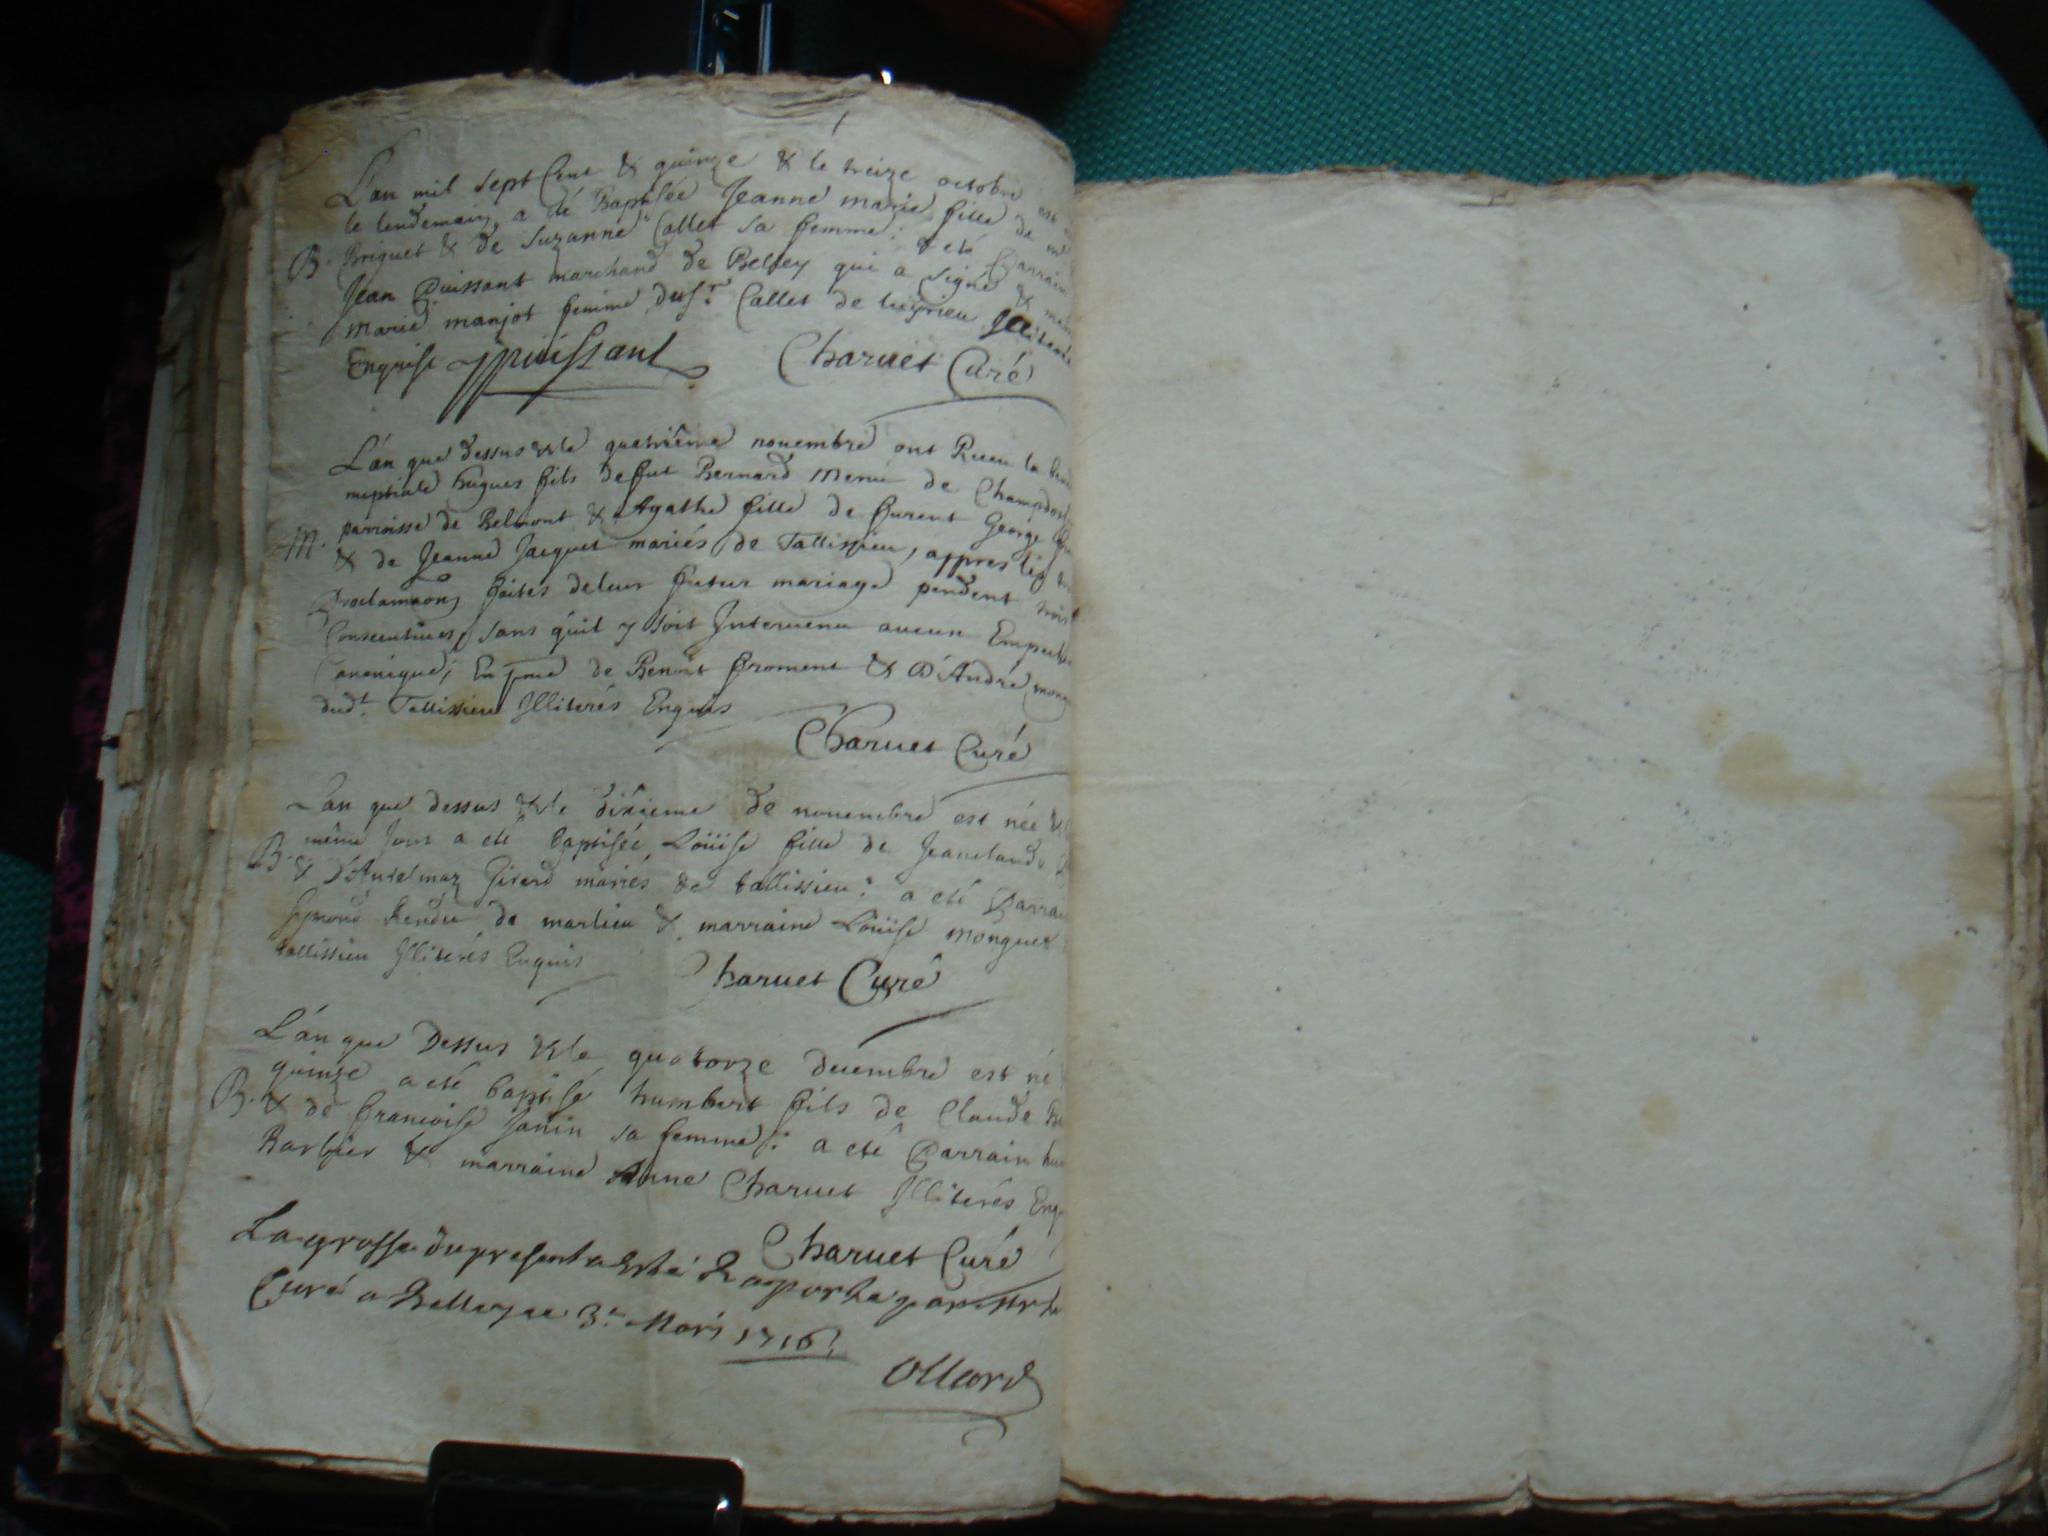 L'an mil sept Cent & quinze & le treize octobre est
le lendemain a été Baptisée Jeanne marie fille de
B. Briquet & de Suzanne Callet sa femme: a eté Parrain
Jean Puissant marchand de Belley qui a signé &
marie manjot femme du sr. Callet de luyrieu
Enquise JPuissant Charuet Curé
L'an que dessus & le quatrième nouembre ont Receu la
nuptiale hugues fils de fut Bernard Menu de Champdos
M. parroisse de Belmont & Agathe fille de furent George
& de Jeanne Jacquet mariés de Tallissieu, appres les
Proclamaons faites de leur futur mariage pendent trois
Consecutiues, sans quil y soit Interuenu aucun
Canonique; En pnce de Benoit froment & D'André
dudt. Tallissieu Illiterés Enquis
Charuet Curé
L'an que dessus & le dixieme de nouembre est née &
même Jour a eté baptisée Loüise fille de Jeanclaude
B. & D'Antelmaz Girerd mariés de tallissieu: a eté Parrain
Rendu de marlieu & marraine Loüise monguet
tallissieu Illiterés Enquis
Charuet Curé
L'an que Dessus & le quatorze decembre est né
quinze a eté baptisé humbert fils de Claude
B. & de francoise Janin sa femme: a eté Parrain
Barbier & marraine Anne Charuet Illiterés
Charuet Curé
La grosse du present a esté Raporté par
Curé a Belley ce 3e. Mars 1716
Ollard